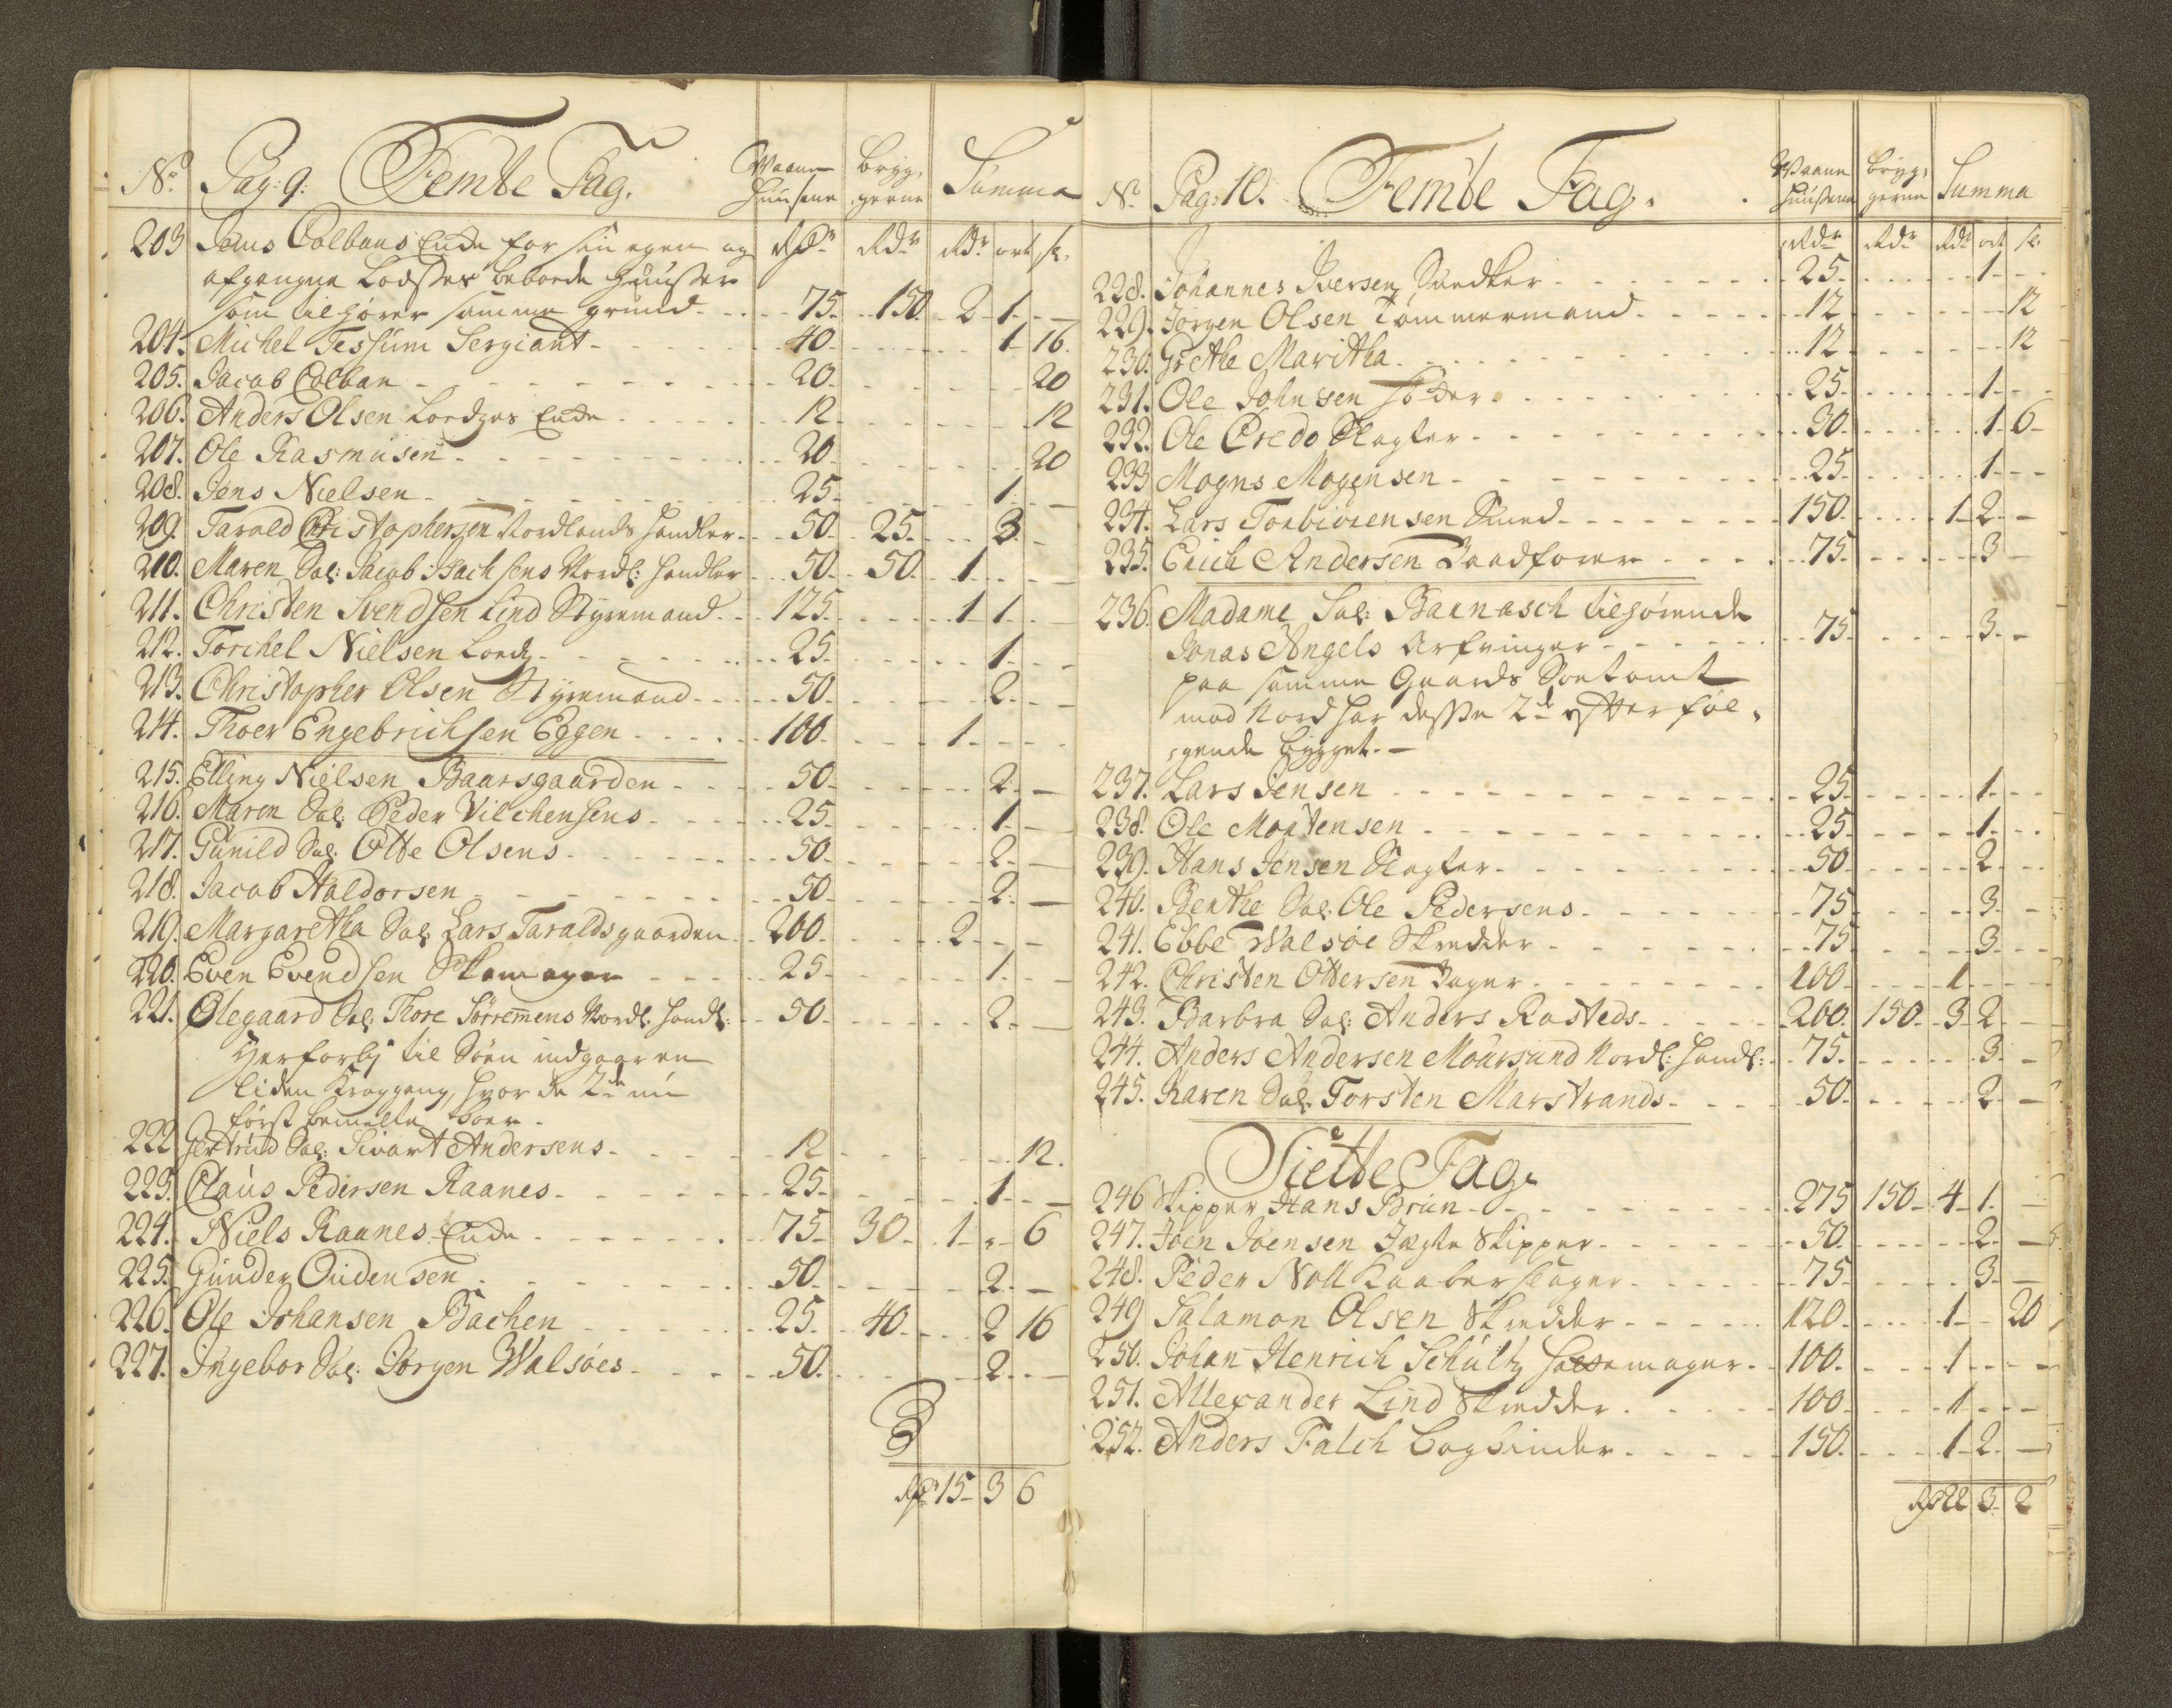 No. Pag: 9: Femte Fag. Waane Huusene Bryg, gerne Summa
Rdr. Rdr. Rdr. ort sk.
203 Jens Colbans Enke for sin egen og
afgangne Lodses beboede Huusser
som tilhører samme grund 75. 150. 2 1.
204. Michel Tessum Sergiant 40 1 16.
205. Jacob Colban 20. 20
206. Anders Olsen Lordzes Enke 12 12
207. Ole Rasmusen 20 20
208. Jens Nielsen 25 1.
209. Tarald Christophersen Nordlands Handler 50. 25. 3.
210. Maren Sal: Jacob Isachsens Nordl: Handler 50. 50. 1
211. Christen Svendsen Lind Styremand 125. 1 1
212. Torchel Nielsen Lordz 25. 1.
213. Christopher Olsen Styremand 50. 2.
214. Thoer Engebrichsen Eggen 100. 1
215. Elling Nielsen Baarsgaarden 50. 2.
216. Maren Sal: Peder Vilchensens 25. 1.
217. Gunild Sal: Otte Olsens 50. 2.
218. Jacob Haldorsen 50. 2.
219. Margaretha Sal: Lars Taraldsgaarden 200. 2
220. Even Evendsen Skomager 25 1.
221. Olegaard Sal: Thore Sørremens Nordl. Handl: 50. 2.
Herforbj til Søen indgaar en
liden Kroggang, hvor de 2de nu
først bemelte boer.
222 Giertrud Sal: Sivart Andersens 12 12.
223. Claus Pedersen Raanes 25. 1
224. Niels Raanes Enke 75 30 1 6
225. Gunder Oudensen 50. 2.
226. Ole Johansen Bachen 25. 40. 2 16
227. Ingebor Sal: Jørgen Walsøes 50. 2.
Rdr 15 3 6
No. Pag: 10. Femte Fag. Waane Huusene Bryg, gerne Summa
Rdr. Rdr. Rdr ort sk.
228. Johannes Iversen Snedker 25. 1
229. Jørgen Olsen Tømmermand 12 12
230. Grethe Maritha 12 12
231. Ole Johnsen 25. 1
232. Ole Credo Slagter 30. 1 6
233 Mogns Mogensen 25. 1
234. Lars Torbiørensen Smed 150. 1 2
235. Erich Andersen Baadfører 75. 3
236. Madame Sal: Barnasch tilhørende
Jonas Angels Arfvinger 75. 3.
paa samme Gaards Søetomt
mod Nord har desse 2de efterføl,
gende bygget.
237. Lars Jensen 25 1.
238. Ole Mortensen 25 1.
239. Hans Jensen Slagter 50 2
240. Benthe Sal. Ole Pedersens 75 3.
241. Ebbe Walsøe Skredder 75 3.
242. Christen Ottersen Bager 100 1
243. Barbra Sal: Anders Rosteds 200. 150 3 2
244. Anders Andersen Moursund Nordl: Handl: 75. 3.
245. Karen Sal. Torsten Marstrands 50. 2.
Siette Fag.
246 Skipper Hans Brun 275 150 4 1.
247. Joen Joensen Jægte Skipper 50. 2.
248. Peder Noll Kaaberslager 75 3.
249 Salamon Olsen Skredder 120. 1 20
250. Johan Henrich Schultz 100. 1
251. Allexander Lind Skredder 100 1
252. Anders Falch Bogbinder 150. 1 2.
Rdr 22 3. 2